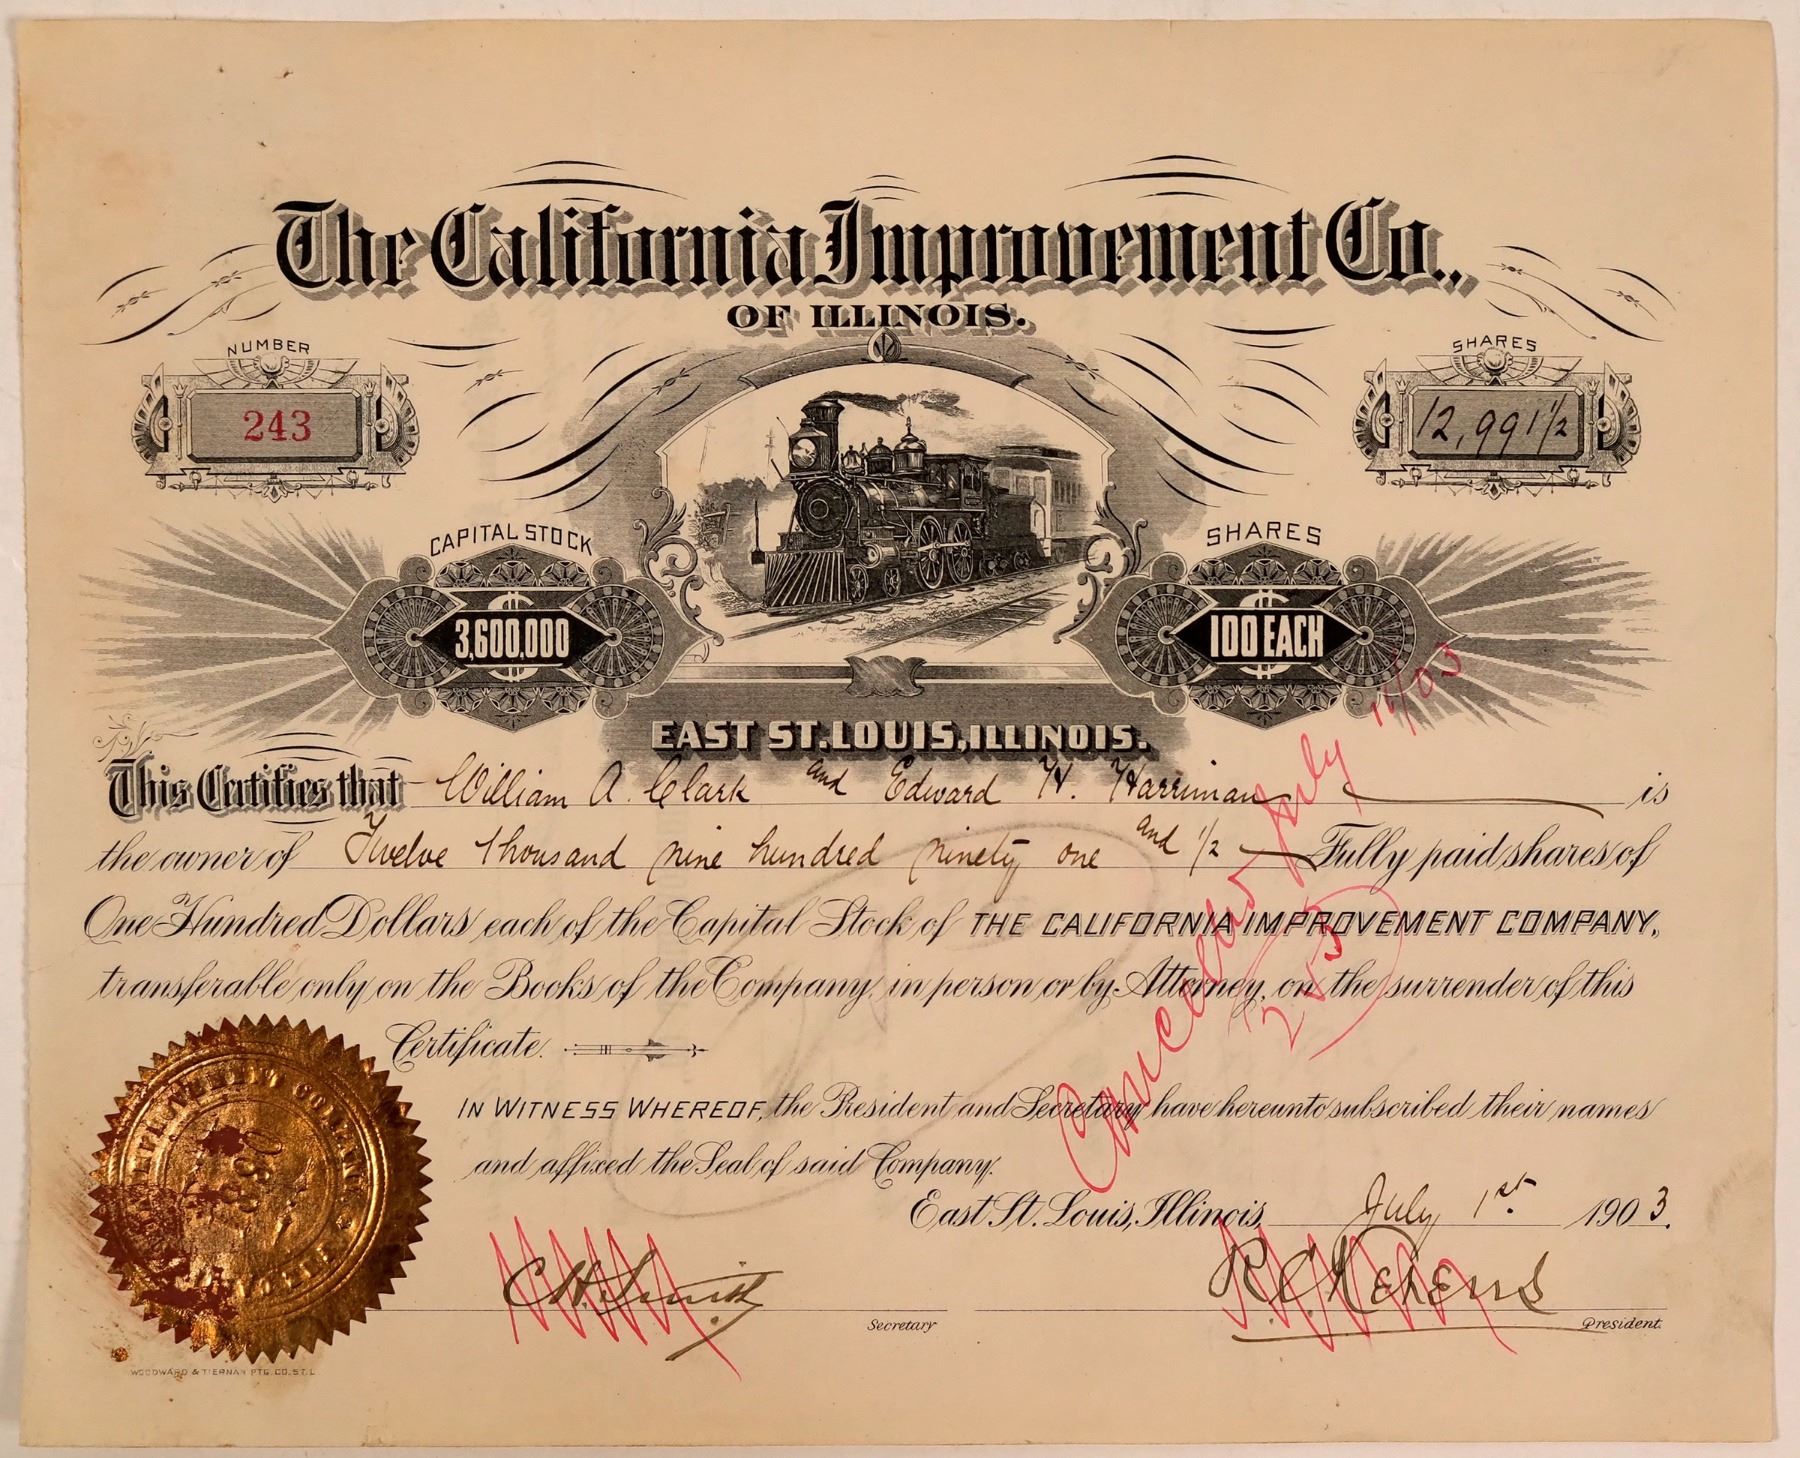 The California Improvement Co.,
OF ILLINOIS.
NUMBER
243
SHARES
12,991 1/2
CAPITAL STOCK
$3,600,000
SHARES
$100 EACH
EAST ST. LOUIS, ILLINOIS.
This Certifies that William A. Clark and Edward H. Harriman is
the owner of Twelve thousand nine hundred ninety one and 1/2 Fully paid shares of
One Hundred Dollars each of the Capital Stock of THE CALIFORNIA IMPROVEMENT COMPANY,
transferable only on the Books of the Company, in person or by Attorney, on the surrender of this
Certificate.
IN WITNESS WHEREOF, the President and Secretary have hereunto subscribed their names
and affixed the Seal of said Company.
East St. Louis, Illinois, July 1st. 1903.
C.H. Smith
Secretary
R.C. Kerens
President.
Cancelled July /03
WOODWARD & TIERNAN PTG. CO. ST. L.
IMPROVEMENT COMPANY